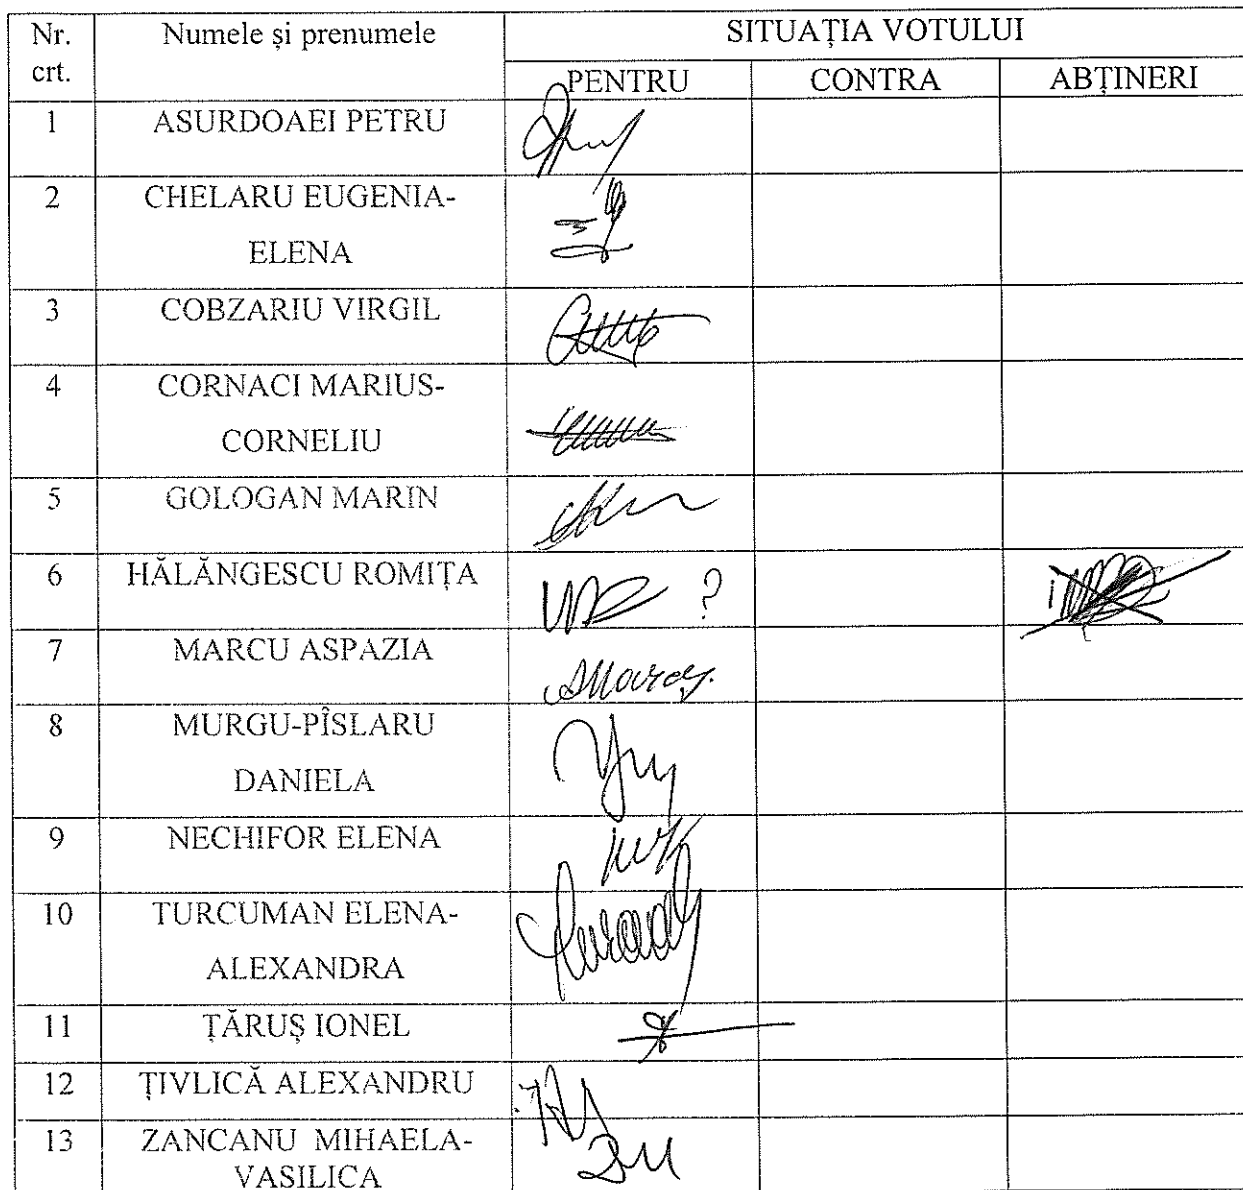 Nr. crt. Numele și prenumele SITUAȚIA VOTULUI
PENTRU CONTRA ABȚINERI
1 ASURDOAEI PETRU
2 CHELARU EUGENIA-
ELENA
3 COBZARIU VIRGIL
4 CORNACI MARIUS-
CORNELIU
5 GOLOGAN MARIN
6 HĂLĂNGESCU ROMIȚA ?
7 MARCU ASPAZIA
8 MURGU-PÎSLARU
DANIELA
9 NECHIFOR ELENA
10 TURCUMAN ELENA-
ALEXANDRA
11 ȚĂRUȘ IONEL
12 ȚIVLICĂ ALEXANDRU
13 ZANCANU MIHAELA-
VASILICA